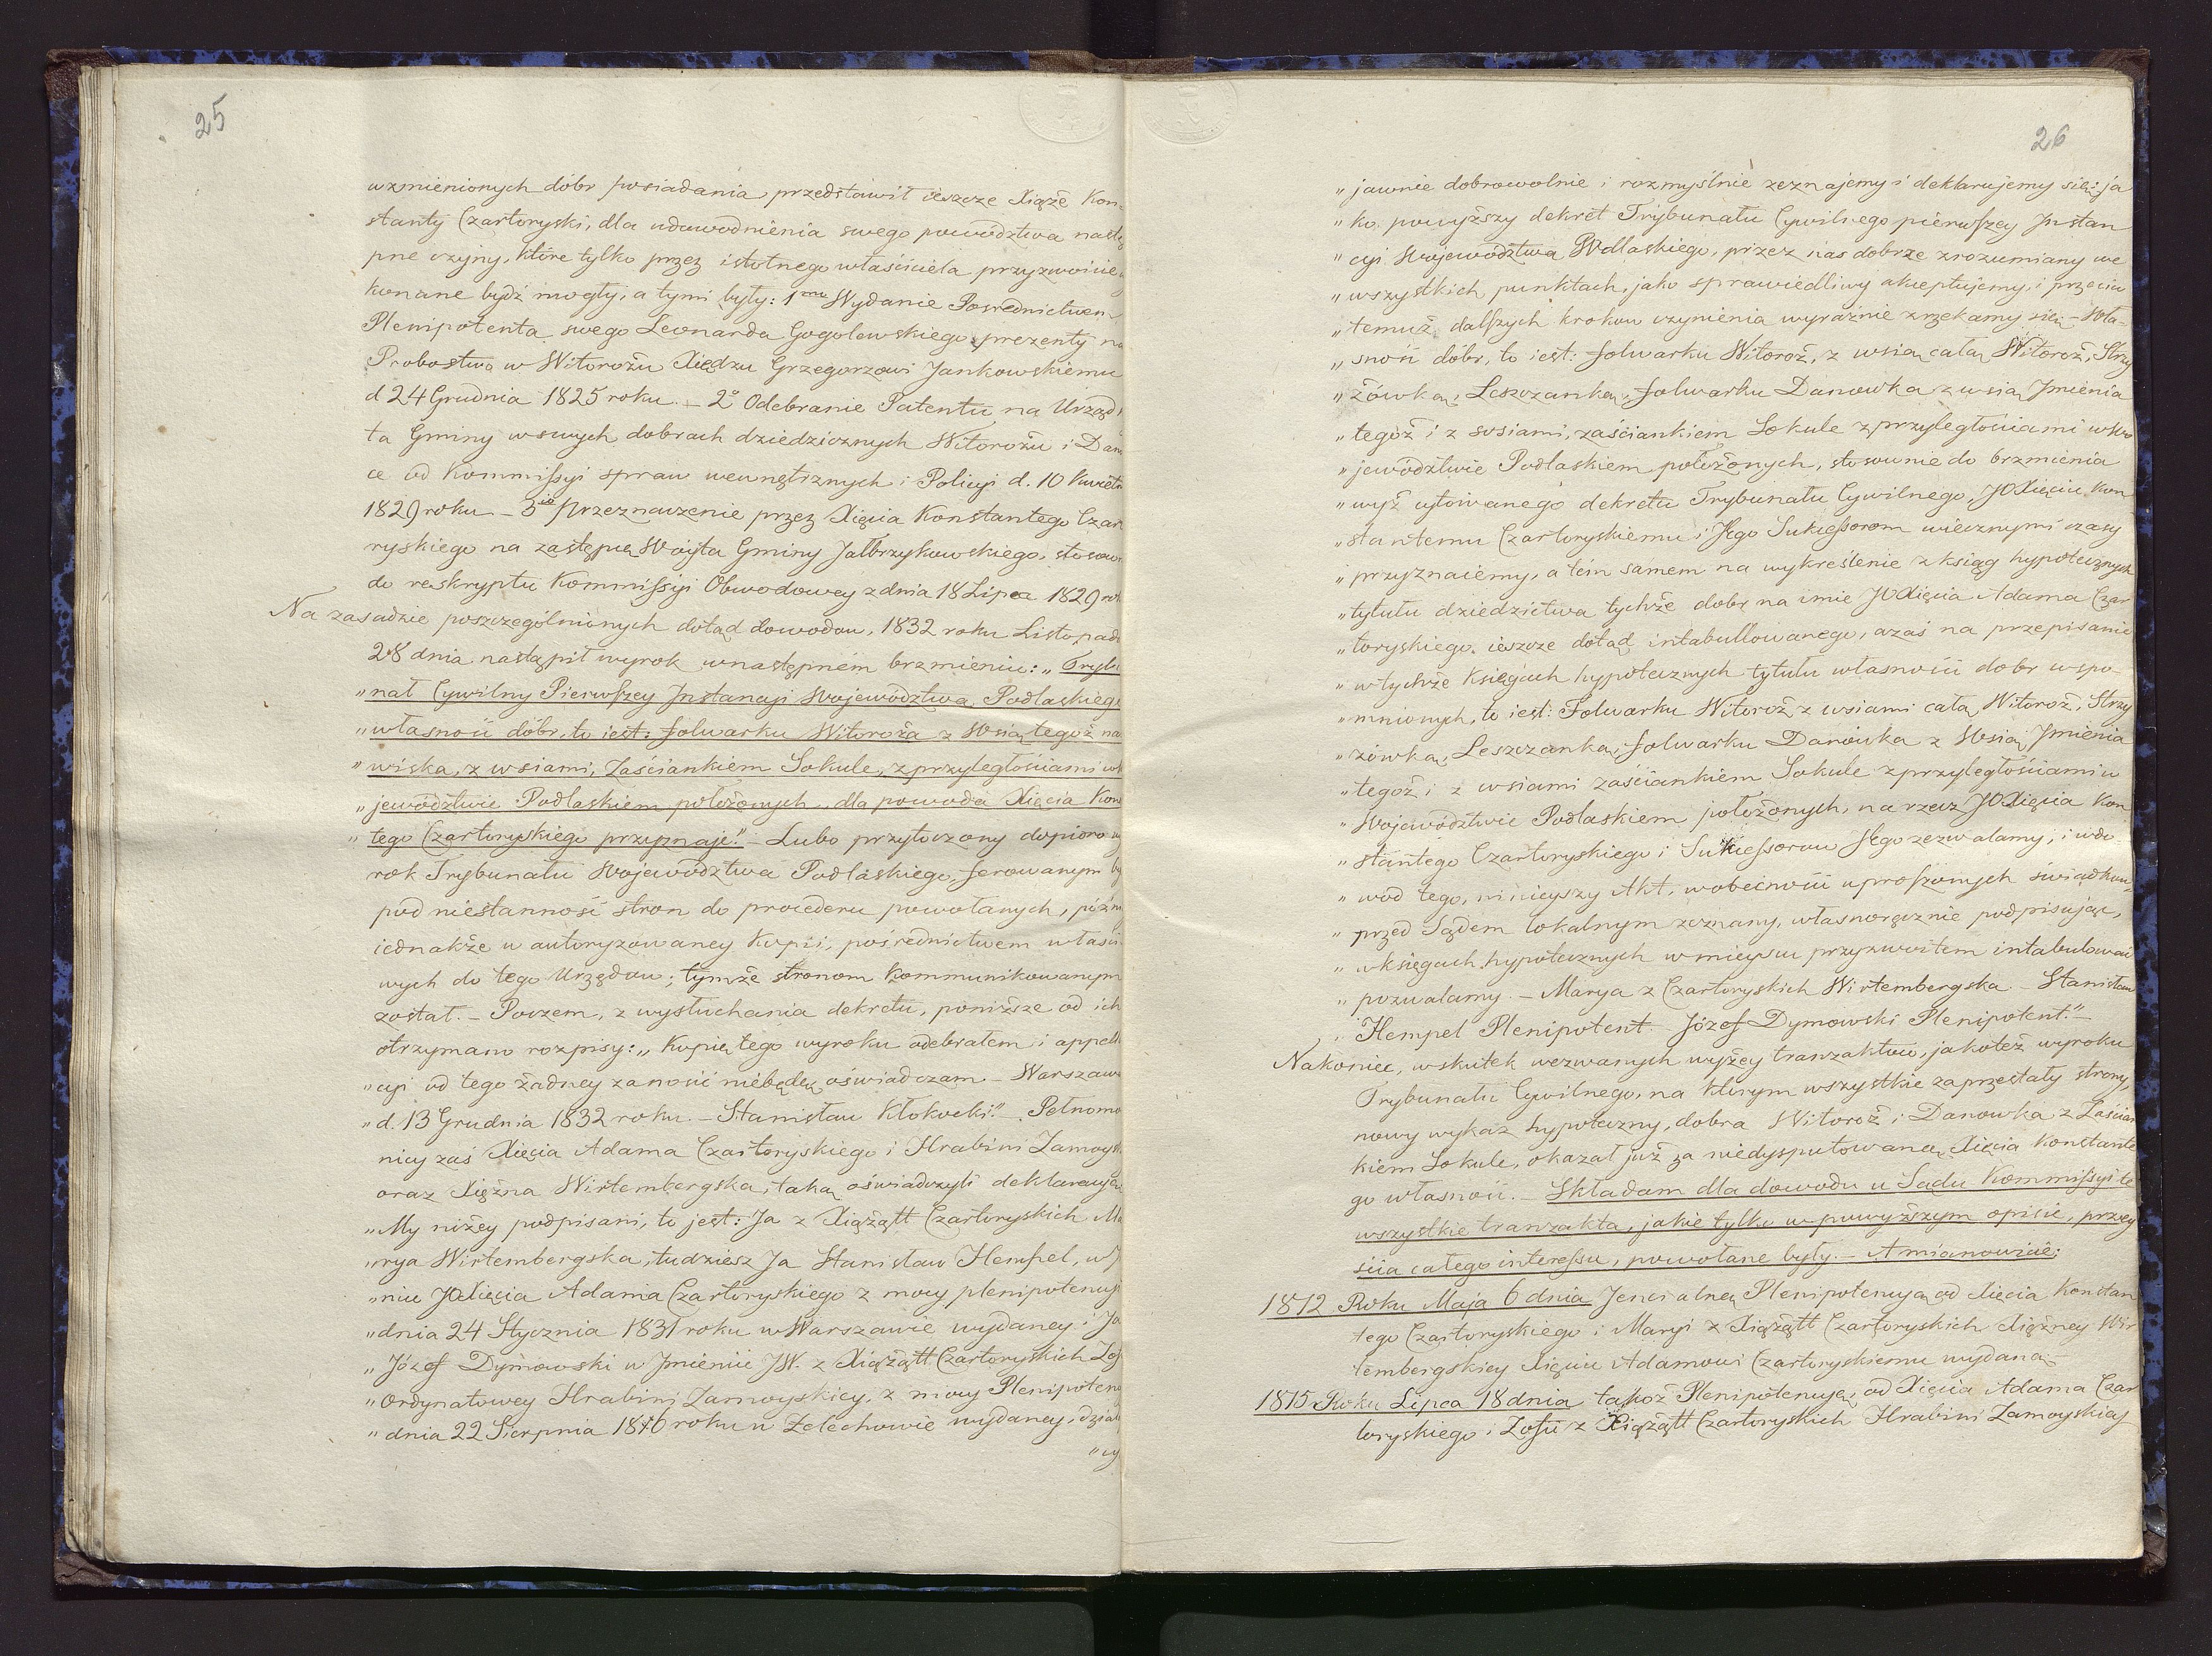 25
wzmienionych dóbr posiadania, przedstawił ieszcze Xiąże Kon
stanty Czartoryski, dla udowodnienia swego powództwa nastę
pne czyny, które tylko przez istotnego właściciela przyzwoicie
konane bydź mogły, a tymi były: 1mo Wydanie Posrednictwem
Plenipotenta swego Leonarda Gogolewskiego prezenty na
Probostwo w Witorożu Xiędzu Grzegorzowi Jankowskiemu
d 24 Grudnia 1825 roku. – 2o Odebranie Patentu na Urząd
ta Gminy w swych dobrach dziedzicznych Witorożu i Dan
ce od Kommissyi spraw wewnętrznych i Policyi d. 10 Kwietn
1829 roku – 3io Przeznaczenie przez Xięcia Konstantego Czar
ryskiego na zastępcę Wóyta Gminy Jałbrzykowskiego, stosow
do reskryptu Kommissyi Obwodowey z dnia 18 Lipca 1829 rok
Na zasadzie poszczególnionych dotąd dowodow, 1832 roku Listopad
28 dnia nastąpił wyrok w następnem brzmieniu: „Trybu
„nał Cywilny Pierwszey Instancyi Województwa Podlaskiego
„własność dóbr, to iest: folwarku Witoroża z Wsią tegoż na
„wiska, z wsiami, Zaściankiem Sokule, z przyległościami w
„jewództwie Podlaskiem położonych, dla powoda Xięcia Kons
„tego Czartoryskiego przyznaje." – Lubo przytoczony dopioro wy
rok Trybunału Województwa Podlaskiego, ferowanym by
pod niestanność stron do procederu powołanych, późn
iednakże w autoryzowaney Kopii, pośrednictwem właści
wych do tego Urzędow; tymże stronom kommunikowanym
został. – Poczem, z wysłuchania dekretu, poniższe od ich
otrzymano rozpisy: „Kopię tego wyroku odebrałem i appell
„cyi od tego żadney zanosić niebędę oświadczam – Warszawa
„d. 13 Grudnia 1832 roku. – Stanisław Kłokocki." – Pełnomo
nicy zaś Xięcia Adama Czartoryskiego i Hrabini Zamoysk
oraz Xiężna Wirtembergska, taką oświadczyli deklaracyą
„My niżey podpisani, to jest: Ja z Xiążątt Czartoryskich Ma
„rya Wirtembergska, tudziesz Ja Stanisław Hempel, w J
„niu JOXięcia Adama Czartoryskiego z mocy plenipotencyi
„dnia 24 Stycznia 1831 roku w Warszawie wydaney i Ja
„Józef Dymowski w Jmieniu JW. z Xiążątt Czartoryskich Zofi
„Ordynatowey Hrabini Zamoyskiey, z mocy Plenipoten
„dnia 22 Sierpnia 1816 roku w Żelechowie wydaney, dział
„cy
26
„jawnie dobrowolnie i rozmyślnie zeznajemy i deklarujemy się: ja
„ko powyższy dekret Trybunału Cywilnego pierwszey Instan
„cyi Województwa Podlaskiego, przez nas dobrze zrozumiany we
„wszystkich punktach, jako sprawiedliwy akceptujemy, i przeciw
„temuż dalszych krokow czynienia wyraźnie zrzekamy się – Wła-
„sność dóbr, to iest: folwarku Witoroż, z wsią całą Witoroż, Strzy
„żówką, Leszczanką, folwarku Danowka z wsią Jmienia
„tegoż i z wsiami, zaściankiem Sokule z przyległościami w Wo
„jewództwie Podlaskiem położonych, stosownie do brzmienia
„wyż cytowanego dekretu Trybunału Cywilnego, JOXięciu Kon
„stantemu Czartoryskiemu i Jego Sukcessorom wiecznymi czasy
„przyznaiemy, a tém samem na wykreślenie z ksiąg hypotecznych
„tytułu dziedzictwa tychże dobr na imie JOXięcia Adama Czar
„toryskiego ieszcze dotąd intabullowanego, azaś na przepisanie
„w tychże Księgach hypotecznych tytułu własności dobr wspo-
„mnionych, to iest: Folwarku Witoroż z wsiami całą Witoroż, Strzy
„żówką, Leszczanką, folwarku Danówka z Wsią Jmienia
„tegoż i z wsiami zaściankiem Sokule z przyległościami w
„Województwie Podlaskiem położonych, na rzecz JOXięcia Kon
„stantego Czartoryskiego i Sukcessorow Jego zezwalamy; i w do-
„wod tego, ninieyszy Akt, w obecności uproszonych świadkow,
„przed Sądem lokalnym zeznany, własnoręcznie podpisując,
„w księgach hypotecznych w mieyscu przyzwoitem intabulować
„pozwalamy. – Marya z Czartoryskich Wirtembergska. – Stanisław
„Hempel Plenipotent. Józef Dymowski Plenipotent." –
Nakoniec, w skutek wezwanych wyżey tranzaktow, jakoteż wyroku
Trybunału Cywilnego, na którym wszystkie zaprzestały strony,
nowy wykaz hypoteczny, dobra Witoroż i Danowka z Zaścian
kiem Sokule, okazał już za niedysputowaną Xięcia Konstante
go własność. – Składam dla dowodu u Sądu Kommissyi te
wszystkie tranzakta, jakie tylko w powyższym opisie, przey
ścia całego interessu, powołane były. – A mianowicie:
1812 Roku Maja 6 dnia Jeneralną Plenipotencyą od Xięcia Konstan
tego Czartoryskiego i Maryi z Xiążątt Czartoryskich Xiężney Wir
tembergskiey Xięciu Adamowi Czartoryskiemu wydaną. –
1815 Roku Lipca 18 dnia takoż Plenipotencyę, od Xięcia Adama Czar
toryskiego i Zofii z Xiążątt Czartoryskich Hrabini Zamoyskiey